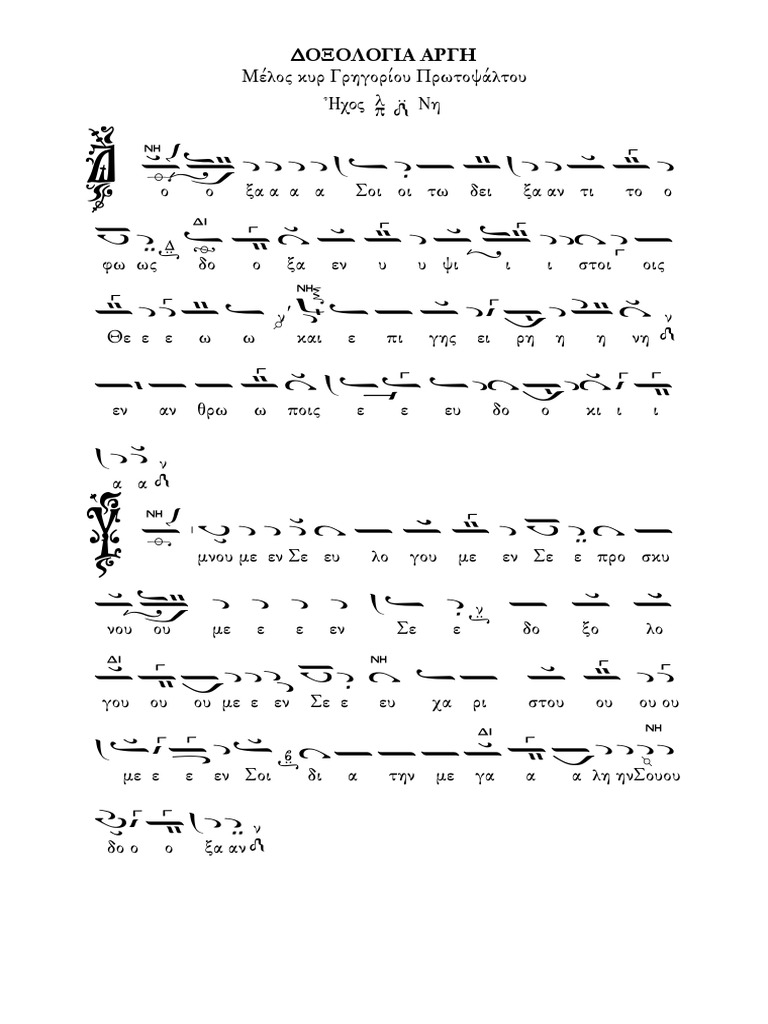 ΔΟΞΟΛΟΓΙΑ ΑΡΓΗ
Μέλος κυρ Γρηγορίου Πρωτοψάλτου
Ἦχος λ π Νη
ΝΗ
Δ ο ο ξα α α α Σοι οι τω δει ξα αν τι το ο
ΔΙ
φω ως Δ δο ο ξα εν υ υ ψι ι ι στοι οις
ΝΗ
Θε ε ε ω ω και ε πι γης ει ρη η η νη ν
εν αν θρω ω ποις ε ε ευ δο ο κι ι ι
α α ν
ΝΗ
Υ μνου με εν Σε ευ λο γου με εν Σε ε προ σκυ
νου ου με ε ε εν Σε ε ν δο ξο λο
ΔΙ ΝΗ
γου ου ου με ε εν Σε ε ευ χα ρι στου ου ου ου
ΔΙ ΝΗ
με ε ε εν Σοι β δι α την με γα α α λη ην Σου ου
δο ο ο ξα αν ν